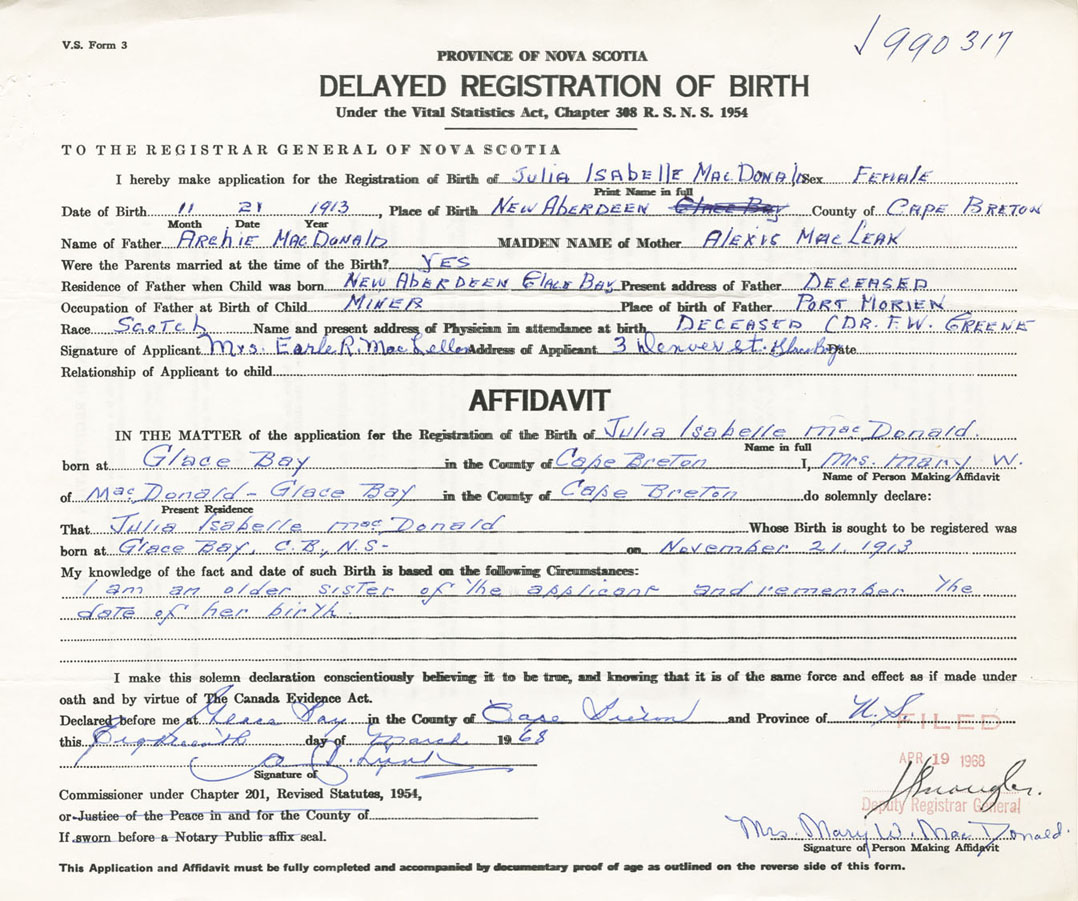 V.S. Form 3
990317
PROVINCE OF NOVA SCOTIA
DELAYED REGISTRATION OF BIRTH
Under the Vital Statistics Act, Chapter 308 R. S. N. S. 1954
TO THE REGISTRAR GENERAL OF NOVA SCOTIA
I hereby make application for the Registration of Birth of Julia Isabelle MacDonald Sex Female
Print Name in full
Date of Birth 11 21 1913, Place of Birth New Aberdeen Glace Bay County of Cape Breton
Month Date Year
Name of Father Archie MacDonald MAIDEN NAME of Mother Alexis MacLeak
Were the Parents married at the time of the Birth? Yes
Residence of Father when Child was born New Aberdeen Glace Bay Present address of Father Deceased
Occupation of Father at Birth of Child Miner Place of birth of Father Port Morien
Race Scotch Name and present address of Physician in attendance at birth Deceased (Dr. F.W. Greene
Signature of Applicant Mrs. Earle R. MacLellan Address of Applicant 3 Denver St. Glace Bay Date
Relationship of Applicant to child
AFFIDAVIT
IN THE MATTER of the application for the Registration of the Birth of Julia Isabelle MacDonald.
Name in full
born at Glace Bay in the County of Cape Breton I, Mrs. Mary W.
Name of Person Making Affidavit
of MacDonald - Glace Bay in the County of Cape Breton do solemnly declare:
Present Residence
That Julia Isabelle MacDonald Whose Birth is sought to be registered was
born at Glace Bay, C.B., N.S- on November 21, 1913
My knowledge of the fact and date of such Birth is based on the following Circumstances:
I am an older sister of the applicant and remember the
date of her birth.
I make this solemn declaration conscientiously believing it to be true, and knowing that it is of the same force and effect as if made under
oath and by virtue of The Canada Evidence Act.
Declared before me at Glace Bay in the County of Cape Breton and Province of N.S.
FILED
this Eighteenth day of March 1968
APR 19 1968
Signature of
Commissioner under Chapter 201, Revised Statutes, 1954,
Deputy Registrar General
or Justice of the Peace in and for the County of
Mrs. Mary W. MacDonald.
If sworn before a Notary Public affix seal.
Signature of Person Making Affidavit
This Application and Affidavit must be fully completed and accompanied by documentary proof of age as outlined on the reverse side of this form.